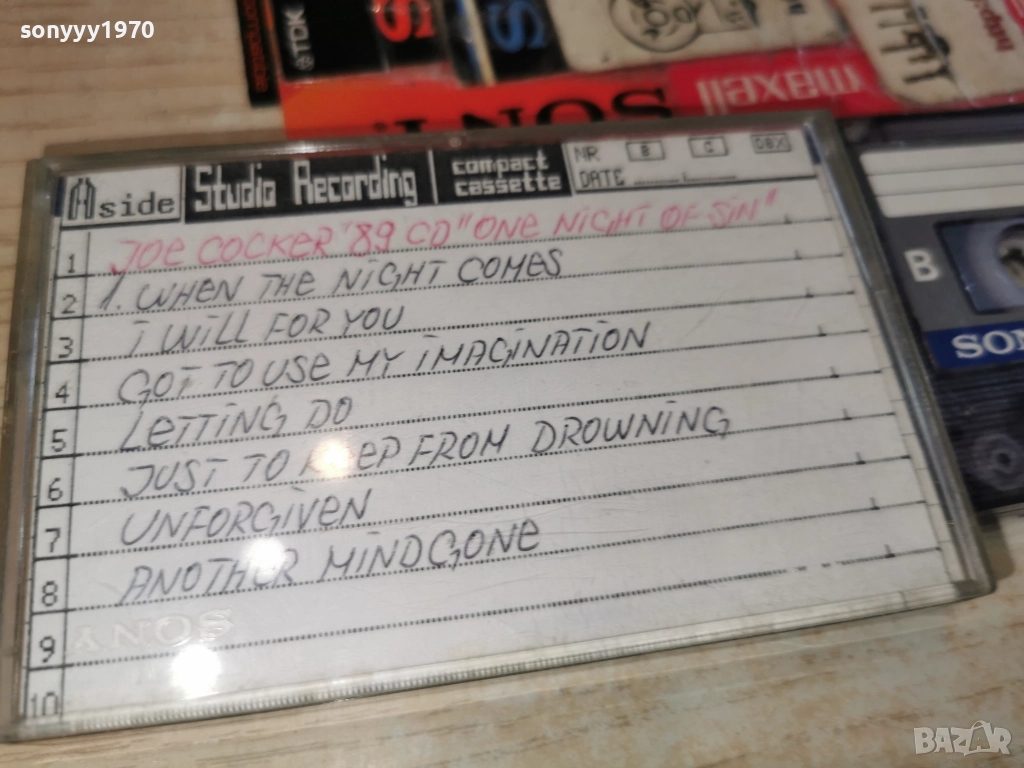 sonyyy1970
TDK
S
S
maxell
SONY
A side
Studio Recording
compact
cassette
NR B C DBX
DATE
1 JOE COCKER '89 CD "ONE NIGHT OF SIN"
2 1. WHEN THE NIGHT COMES
3 I WILL FOR YOU
4 GOT TO USE MY IMAGINATION
5 LETTING DO
6 JUST TO KEEP FROM DROWNING
7 UNFORGIVEN
8 ANOTHER MIND GONE
9
10
SONY
B
SON
BAZAR